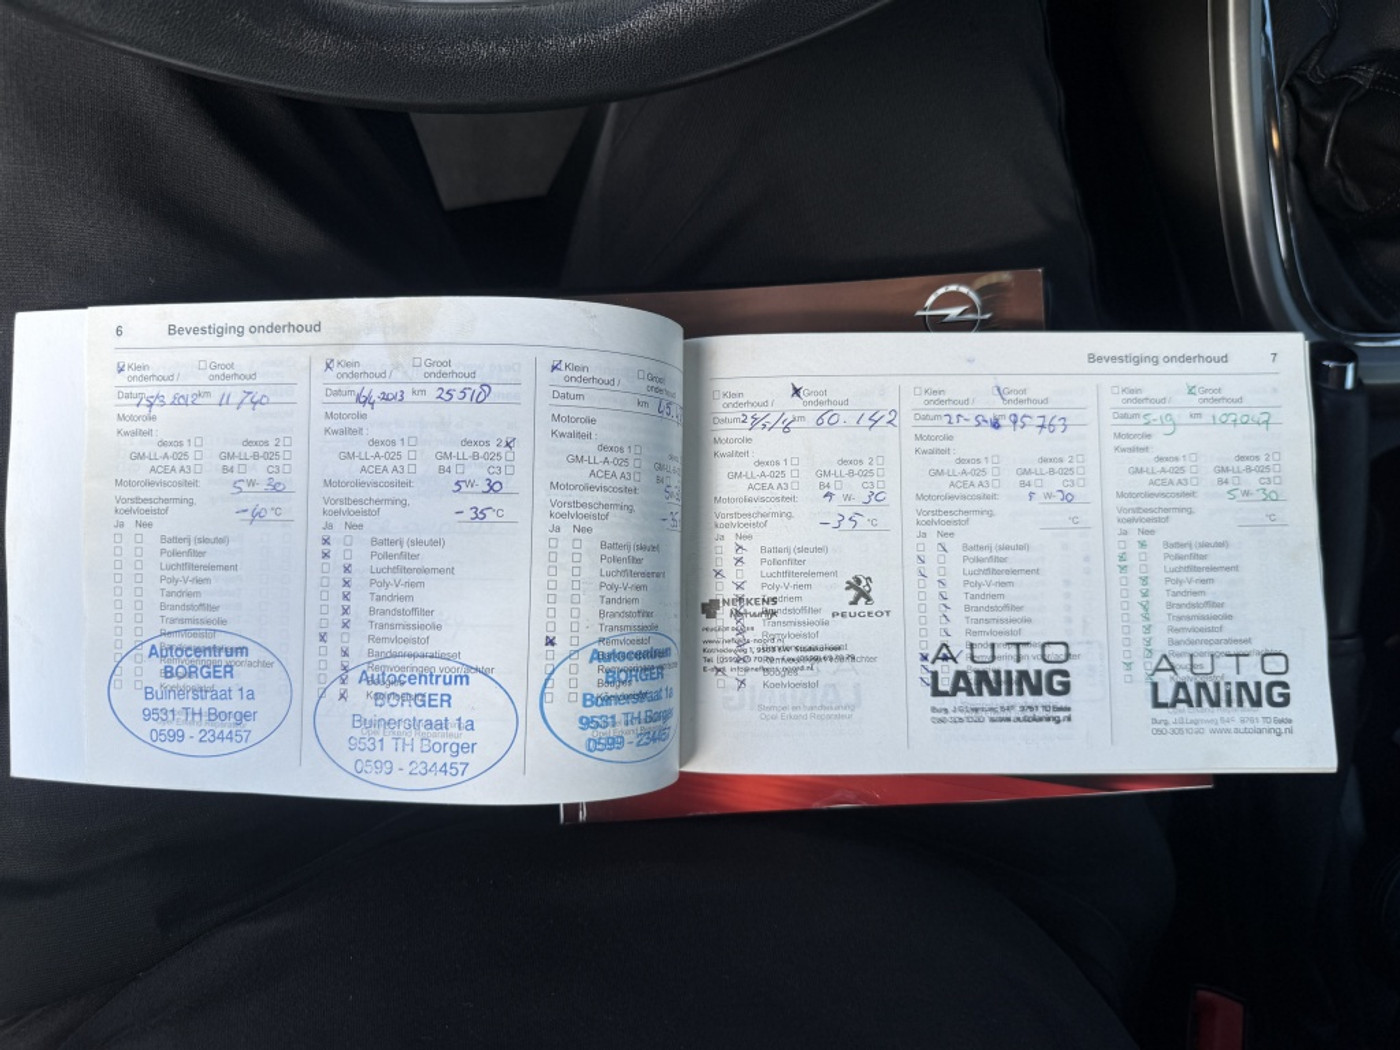 6 Bevestiging onderhoud
Klein onderhoud / Groot onderhoud
Datum 15/3 2012 km 11740
Motorolie
Kwaliteit :
dexos 1 dexos 2
GM-LL-A-025 GM-LL-B-025
ACEA A3 B4 C3
Motorolieviscositeit: 5 W- 30
Vorstbescherming,
koelvloeistof -40 °C
Ja Nee
Batterij (sleutel)
Pollenfilter
Luchtfilterelement
Poly-V-riem
Tandriem
Brandstoffilter
Transmissieolie
Remvloeistof
Autocentrum
BORGER
Buinerstraat 1a
9531 TH Borger
0599 - 234457
Klein onderhoud / Groot onderhoud
Datum 16/4-2013 km 25510
Motorolie
Kwaliteit :
dexos 1 dexos 2
GM-LL-A-025 GM-LL-B-025
ACEA A3 B4 C3
Motorolieviscositeit: 5 W- 30
Vorstbescherming,
koelvloeistof -35 °C
Ja Nee
Batterij (sleutel)
Pollenfilter
Luchtfilterelement
Poly-V-riem
Tandriem
Brandstoffilter
Transmissieolie
Remvloeistof
Bandenreparatieset
Remvoeringen voor/achter
Bougies
Autocentrum
BORGER
Buinerstraat 1a
9531 TH Borger
0599 - 234457
Klein onderhoud / Groot onderhoud
Datum km
Motorolie
Kwaliteit :
dexos 1
GM-LL-A-025
ACEA A3 B4
Motorolieviscositeit:
Vorstbescherming,
koelvloeistof -35
Ja Nee
Batterij (sleutel)
Pollenfilter
Luchtfilterelement
Poly-V-riem
Tandriem
Brandstoffilter
Transmissieolie
Remvloeistof
Autocentrum
BORGER
Buinerstraat 1a
9531 TH Borger
0599 - 234457
Bevestiging onderhoud 7
Klein onderhoud / Groot onderhoud
Datum 24/5/16 km 60.142
Motorolie
Kwaliteit :
dexos 1 dexos 2
GM-LL-A-025 GM-LL-B-025
ACEA A3 B4 C3
Motorolieviscositeit: 5 W- 30
Vorstbescherming,
koelvloeistof -35 °C
Ja Nee
Batterij (sleutel)
Pollenfilter
Luchtfilterelement
Poly-V-riem
Tandriem
Brandstoffilter
Transmissieolie
Remvloeistof
NEFKENS
PEUGEOT
Bougies
Koelvloeistof
Stempel en handtekening
Opel Erkend Reparateur
Klein onderhoud / Groot onderhoud
Datum 25-5-18 km 95763
Motorolie
Kwaliteit :
dexos 1 dexos 2
GM-LL-A-025 GM-LL-B-025
ACEA A3 B4 C3
Motorolieviscositeit: 5 W- 30
Vorstbescherming,
koelvloeistof °C
Ja Nee
Batterij (sleutel)
Pollenfilter
Luchtfilterelement
Poly-V-riem
Tandriem
Brandstoffilter
Transmissieolie
Remvloeistof
AUTO
LANING
Burg. J.G. Legroweg 64c 9761 TD Eelde
050-3051020 www.autolaning.nl
Klein onderhoud / Groot onderhoud
Datum 5-19 km 107047
Motorolie
Kwaliteit :
dexos 1 dexos 2
GM-LL-A-025 GM-LL-B-025
ACEA A3 B4 C3
Motorolieviscositeit: 5 W- 30
Vorstbescherming,
koelvloeistof °C
Ja Nee
Batterij (sleutel)
Pollenfilter
Luchtfilterelement
Poly-V-riem
Tandriem
Brandstoffilter
Transmissieolie
Remvloeistof
Bandenreparatieset
AUTO
LANING
Burg. J.G. Legroweg 64c 9761 TD Eelde
050-3051020 www.autolaning.nl